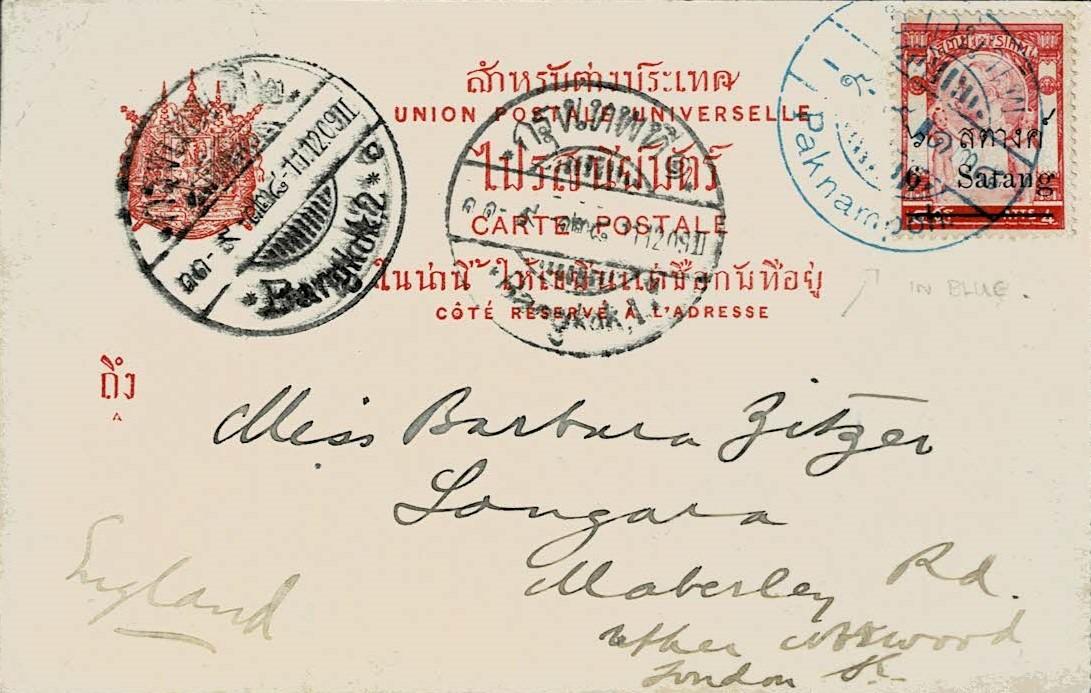 สำหรับต่างประเทศ
UNION POSTALE UNIVERSELLE
ไปรสนียบัตร์
CARTE POSTALE
ในน่านี้ ให้เขียนแต่ชื่อกับที่อยู่
CÔTÉ RÉSERVÉ À L'ADRESSE
11.12.09.II
Bangkok.2
11.12.09.II
Bangkok.1
Paknampoh
สตางค์
6 Satang
IN BLUE.
ถึง
A
Miss Barbara Zitzer
Longara
Maberley Rd.
Upher Norwood
London SE
England